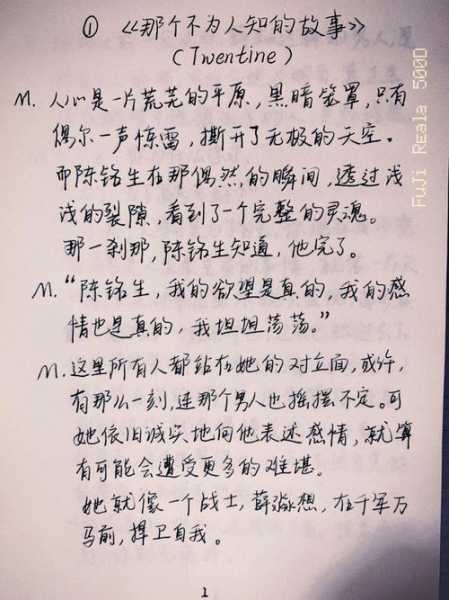 ① 《那个不为人知的故事》
(Twentine)
m. 人心是一片荒芜的平原，黑暗笼罩，只有
偶尔一声惊雷，撕开了无极的天空。
而陈铭生在那偶然的瞬间，透过浅
浅的裂隙，看到了一个完整的灵魂。
那一刹那，陈铭生知道，他完了。
m. “陈铭生，我的欲望是真的，我的感
情也是真的，我坦坦荡荡。”
m. 这里所有人都站在她的对立面，或许，
有那么一刻，连那个男人也摇摆不定。可
她依旧诚实地向他表述感情，就算
有可能会遭受更多的难堪。
她就像一个战士，薛淼想，在千军万
马前，捍卫自我。
1
FuJi Reala 500D